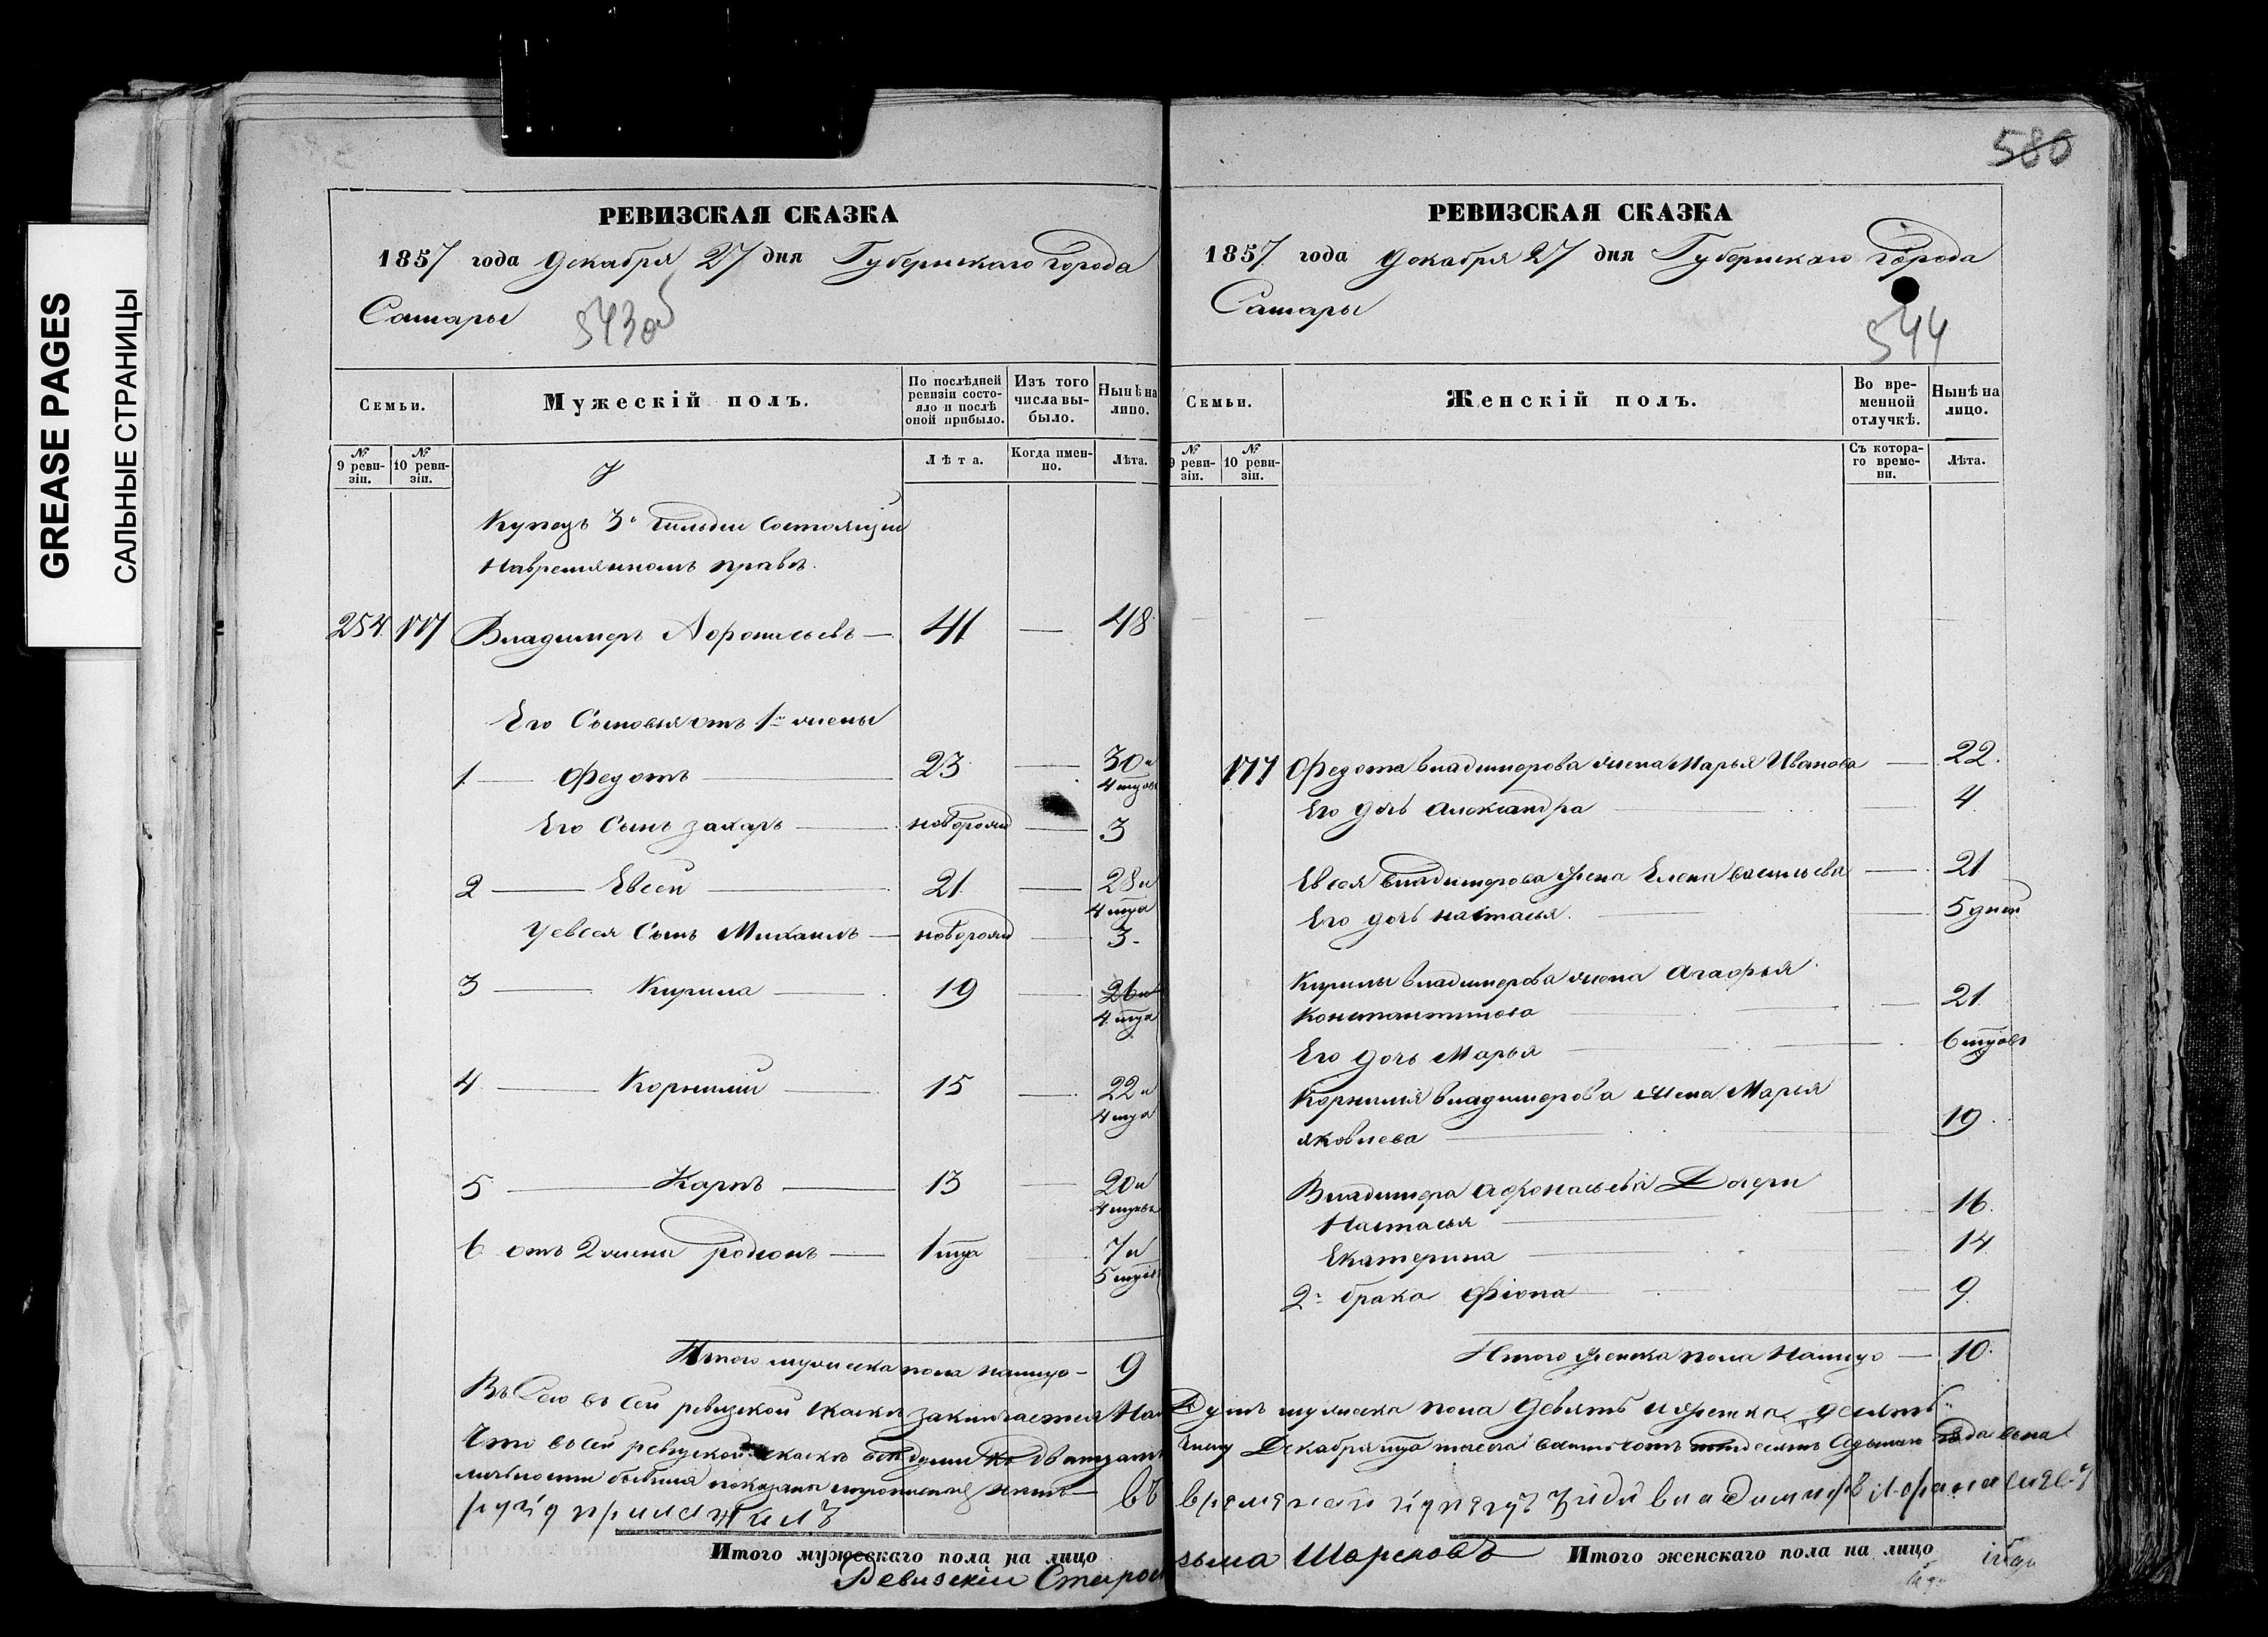 GREASE PAGES
САЛЬНЫЕ СТРАНИЦЫ
РЕВИЗСКАЯ СКАЗКА
1857 года Декабря 27 дня Губернскаго Города
Самары
543об
Семьи.
Мужескій полъ.
По послѣдней ревизіи состояло и послѣ оной прибыло.
Изъ того числа выбыло.
Нынѣ на лицо.
№ 9 ревизіи.
№ 10 ревизіи.
Лѣта.
Когда именно.
Лѣта.
Купецъ 3й гильдіи состоящій
на временномъ правѣ.
254 177 Владимеръ Афонасьевъ — 41 — 48
Его Сыновья отъ 1й жены
1 — Федотъ — 23 — 30 и
4 мцов
Его Сынъ захаръ — новорожд — 3
2 — Евсей — 21 — 28 и
4 мца
У евсея Сынъ Михаилъ — новорожд — 3
3 — Кирила — 19 — 26 и
4 мца
4 — Корнилий — 15 — 22 и
4 мца
5 — Карпъ — 13 — 20 и
4 мцовъ
6 отъ 2 жены родионъ — 1 мца — 7 и
5 мцов
Итого мужеска пола налицо — 9
Итого мужескаго пола на лицо
Ревизскій Старос
580
РЕВИЗСКАЯ СКАЗКА
1857 года Декабря 27 дня Губернскаго Города
Самары
544
Семьи.
Женскій полъ.
Во временной отлучкѣ.
Нынѣ на лицо.
9 ревизіи.
№ 10 ревизіи.
Съ котораго времени.
Лѣта.
177 Федота владимерова жена Марья Иванова — 22.
Его дочь александра — 4
Евсея владимерова жена Елена васильева — 21
Его дочь настасья. — 5 дней
Кирилы владимерова жена Агафья
Константинова — 21.
Его дочь Марья — 6 мцовъ
Корнилия владимерова жена Марья
яковлева — 19.
Владимера афонасьева Дочери
Настасья — 16.
Екатерина — 14
2го брака Фіона — 9.
Итого женска пола Налицо — 10.
Въ сей ревизской сказкѣ заключается На
Душъ мужеска пола Девять и женска десять
Что въ сей ревизской сказкѣ
Декабря мца
показаны
въ
руку приложилъ
владимиръ Афанасиевъ
зьма Шареновъ
Итого женскаго пола на лицо